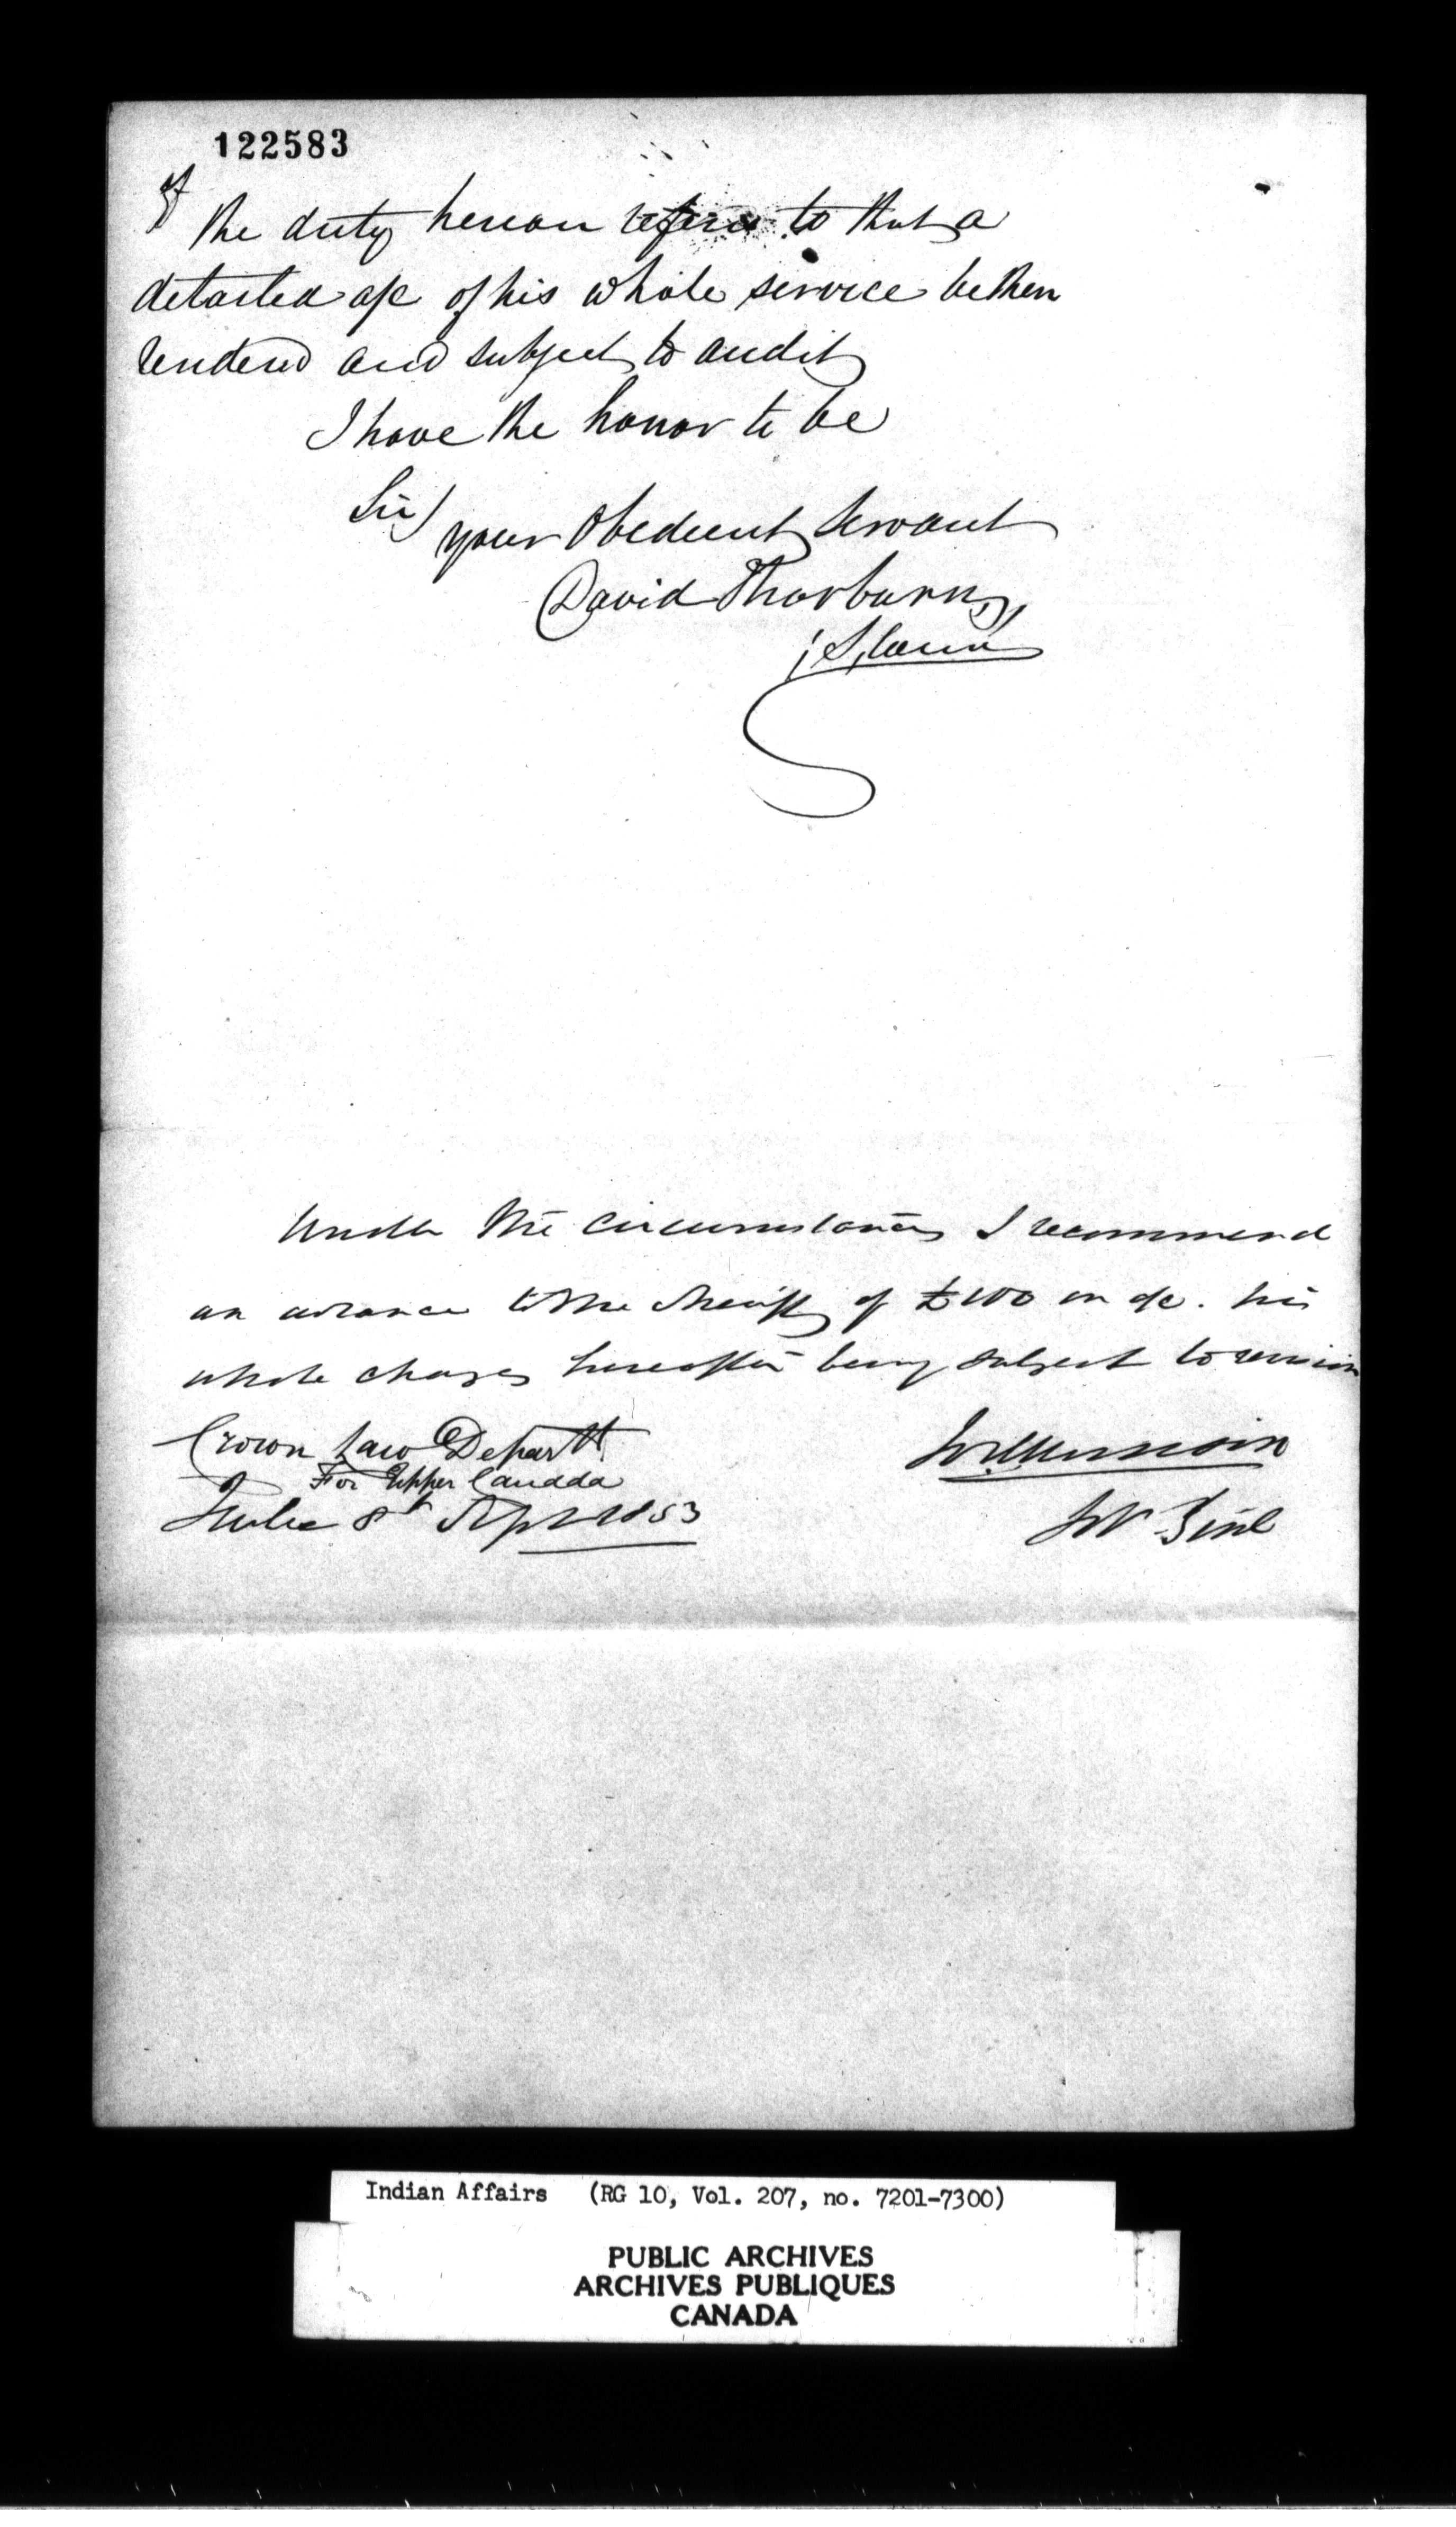 122583
of
the duty hereon refered to that a
detailed a/c of his whole service be then
rendered and subject to audit
I have the honor to be
Sir
your Obedient Servant
David Thorburn
Under the circumstances I recommend
an advance to the Sheriff of £100 on a/c. his
whole charges hereafter being subject to revision
Crown Law Departt
For Upper Canada
8th Sept 1853
Indian Affairs (RG 10, Vol. 207, no. 7201-7300)
PUBLIC ARCHIVES
ARCHIVES PUBLIQUES
CANADA